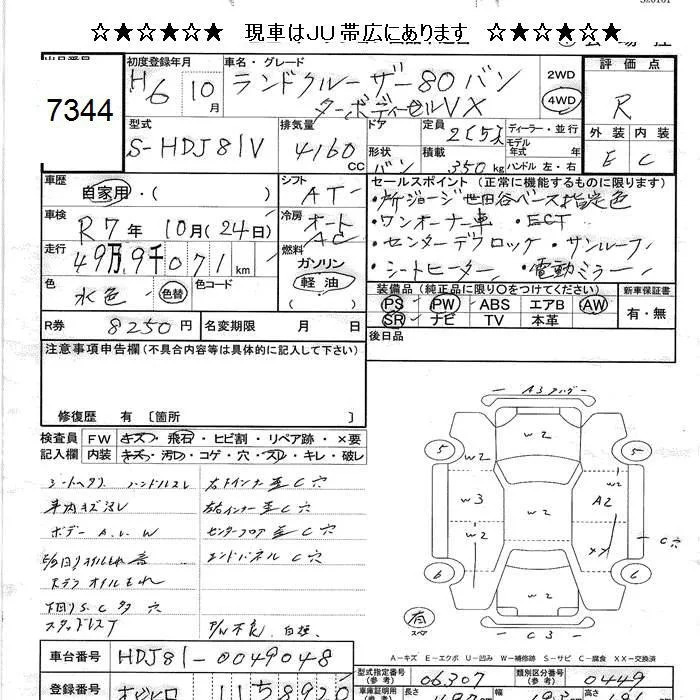 ☆★☆★☆★ 現車はJU帯広にあります ☆★☆★☆★
7344
初度登録年月
H6 10月
車名・グレード
ランドクルーザー80バン
ターボディーゼルVX
2WD
4WD
評価点
R
外装 内装
E C
型式
S-HDJ81V
排気量
4160
CC
ドア
定員
2(5)人
ディーラー・並行
モデル
年式 年
形状
バン
積載
350kg
ハンドル 左・右
車歴
自家用・( )
シフト
AT
車検
R7年 10月(24日)
冷房
オート
AC
走行
49万9千071km
燃料
ガソリン
軽油
色
水色
色替
色コード
R券 8250円
名変期限 月 日
セールスポイント(正常に機能するものに限ります)
・所ジョージ世田谷ベース指定色
・ワンオーナー車 ・ECT
・センターデフロック・サンルーフ
・シートヒーター ・電動ミラー
装備品(純正品に限り○をつけてください)
新車保証書
PS PW ABS エアB AW
SR ナビ TV 本革
有・無
後日品
注意事項申告欄(不具合内容等は具体的に記入して下さい)
修復歴 有 〔箇所 〕
検査員
記入欄
FW キズ・飛石・ヒビ割・リペア跡・×要
内装 キズ・汚れ・コゲ・穴・スレ・キレ・破レ
シートヘタリ ハンドルスレ
車内キズ汚レ
ボデー A.U.W
下回りS.C多 穴
スタッドレスT
センターフロア 並C穴
エンドパネル C穴
W2
W2
W3
W2
W2
W2
W2
A2
XX
C穴
5
5
6
6
有
スペア
C3
A-キズ E-エクボ U-凹み W-補修跡 S-サビ C-腐食 XX-交換済
車台番号 HDJ81-0049048
登録番号
型式指定番号
(参考)
06307
類別区分番号
(参考)
0449